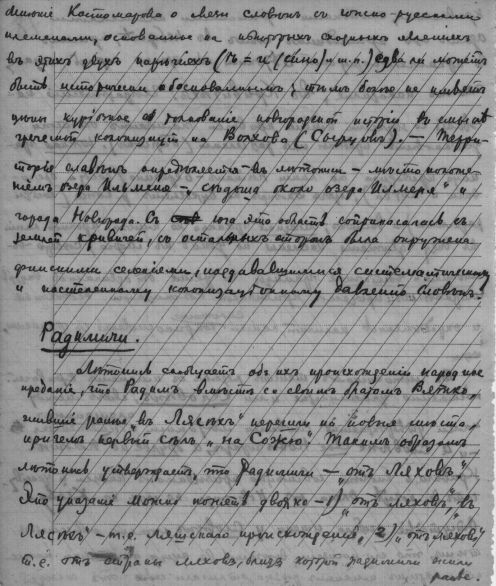 Мнѣніе Костомарова о связи словѣнъ съ южно-русскими
племенами, основанное на нѣкоторыхъ сходныхъ явленіяхъ
въ этихъ двухъ нарѣчіяхъ (ѣ = и (сіно) и т.п.) едва ли можетъ
быть исторически обоснованнымъ; тѣмъ болѣе не имѣетъ
цѣны курьёзное толкованіе новгородской исторіи въ смыслѣ
греческой колонизаціи на Волхова (Сенуовъ). — Терри-
торія славянъ опредѣляется въ лѣтописи — мѣстоположе-
ніемъ озера Ильменя — „сѣдоша около озера Илмеря" и
города Новгорода. Съ юга эта область соприкасалась съ
землей кривичей, съ остальныхъ сторонъ была окружена
финскими селеніями, поддававшимися систематическому
и постепенному колонизаціонному давленію словѣнъ.
Радимичи.
Лѣтопись сообщаетъ объ ихъ происхожденіи народное
преданіе, что Радимъ вмѣстѣ со своимъ братомъ Вятко,
жившіе ранѣе „въ Лясѣхъ" перешли на новыя мѣста,
причемъ первый сѣлъ „на Сожю". Такимъ образомъ
лѣтопись утверждаетъ, что Радимичи — „отъ Ляховъ".
Это указаніе можно понять двояко — 1) „отъ ляховъ" „въ
Лясѣхъ" — т.е. ляшскаго происхожденія, 2) „отъ ляховъ"
т.е. отъ страны ляховъ, вблизи которой радимичи жили
ранѣе.